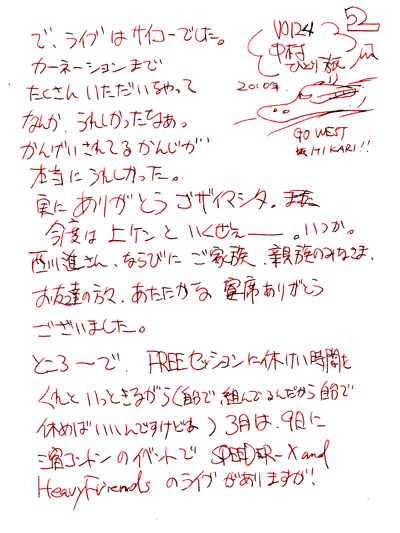 52
VOl24
中村
ひとり旅
2010年.
GO WEST
HIKARI!!
で、ライブはサイコーでした。
カーネーションまで
たくさんいただいちゃって
なんか、うれしかったなぁ。
かんげいされてるかんじが
本当にうれしかった。
実にありがとうゴザイマシタ。また
今度は上ケンといくぜぇー。いつか。
西川進さん、ならびにご家族、親族のみなさま、
お友達の方々、あたたかな宴席ありがとう
ございました。
ところ〜で、FREEセッションに休けい時間を
くれといっときながら(自分で組んでるんだから自分で
休めばいいんですけどね)3月は、9日に
三宿コントンのイベントでSPEEDER-Xand
HeavyFriendsのライブがありますが!